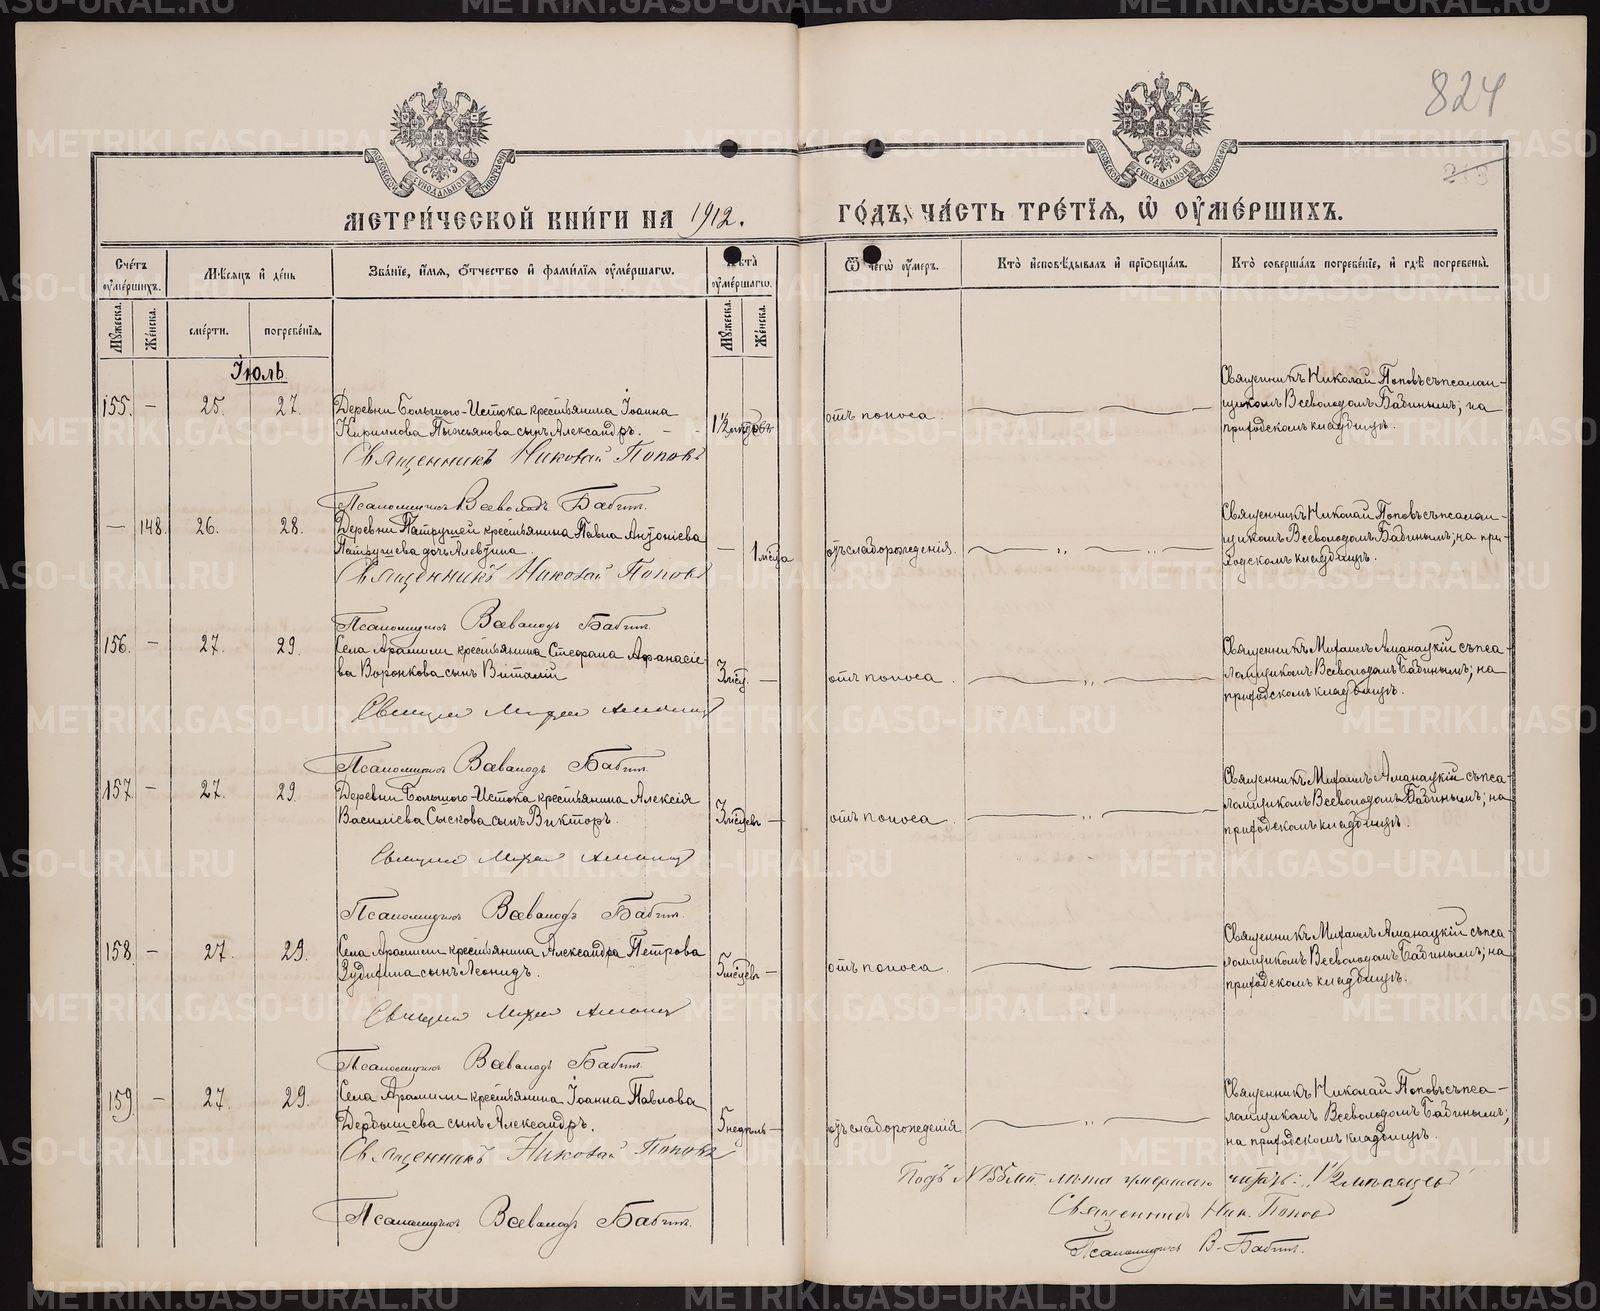 824
МЕТРИЧЕСКОЙ КНИГИ НА 1912.
ГОДЪ, ЧАСТЬ ТРЕТІЯ, Ѡ ОУМЕРШИХЪ.
Счетъ оумершихъ.
Мѣсяцъ и день
Званіе, имя, отчество и фамилія оумершагѡ.
Лѣта оумершагѡ.
Ѿ чегѡ оумеръ.
Кто исповѣдывалъ и пріобщалъ.
Кто совершалъ погребеніе, и гдѣ погребены.
Мужеска.
Женска.
смерти.
погребенія.
Мужеска.
Женска.
Іюль.
155. — 25. 27.
Деревни Большого-Истока крестьянина Іоанна
Кириллова Пыжьянова сынъ Александръ. — -
1½
отъ поноса.
Священникъ Николай Поповъ съ псалом-
щикомъ Всеволодомъ Бабинымъ; на
приходскомъ кладбищѣ.
Священникъ Николай Поповъ
Псаломщикъ Всеволодъ Бабинъ.
— 148. 26. 28.
Деревни Патрушей крестьянина Павла Антоніева
Патрушева дочь Алевтина.
— 1 мѣсяца
отъ слаборожденія.
Священникъ Николай Поповъ съ псалом-
щикомъ Всеволодомъ Бабинымъ; на при-
ходскомъ кладбищѣ.
Священникъ Николай Поповъ
Псаломщикъ Всеволодъ Бабинъ.
156. — 27. 29.
Села Арамили крестьянина Стефана Афанасіе-
ва Воронкова сынъ Виталій
3 мѣсяц. —
отъ поноса.
Священникъ Михаилъ Аманацкій съ пса-
ломщикомъ Всеволодомъ Бабинымъ; на
приходскомъ кладбищѣ.
Священник Михаил Аманацкій
Псаломщикъ Всеволодъ Бабинъ.
157. — 27. 29.
Деревни Большого-Истока крестьянина Алексія
Василіева Сыскова сынъ Викторъ.
3 мѣсяцевъ —
отъ поноса.
Священникъ Михаилъ Аманацкій съ пса-
ломщикомъ Всеволодомъ Бабинымъ; на
приходскомъ кладбищѣ.
Священник Михаил Аманацкій
Псаломщикъ Всеволодъ Бабинъ.
158. — 27. 29.
Села Арамили крестьянина Александра Петрова
Зудихина сынъ Леонидъ.
5 мѣсяцевъ —
отъ поноса.
Священникъ Михаилъ Аманацкій съ пса-
ломщикомъ Всеволодомъ Бабинымъ; на
приходскомъ кладбищѣ.
Священник Михаил Аманацкій
Псаломщикъ Всеволодъ Бабинъ.
159. — 27. 29.
Села Арамили крестьянина Іоанна Павлова
Дербышева сынъ Александръ.
5 недѣль —
отъ слаборожденія
Священникъ Николай Поповъ съ пса-
ломщикомъ Всеволодомъ Бабинымъ;
на приходскомъ кладбищѣ.
Священникъ Николай Поповъ
Псаломщикъ Всеволодъ Бабинъ.
Подъ №155мъ лѣта умершаго читать: "1½ мѣсяцев"
Священникъ Ник. Поповъ
Псаломщикъ В. Бабинъ.
METRIKI.GASO-URAL.RU